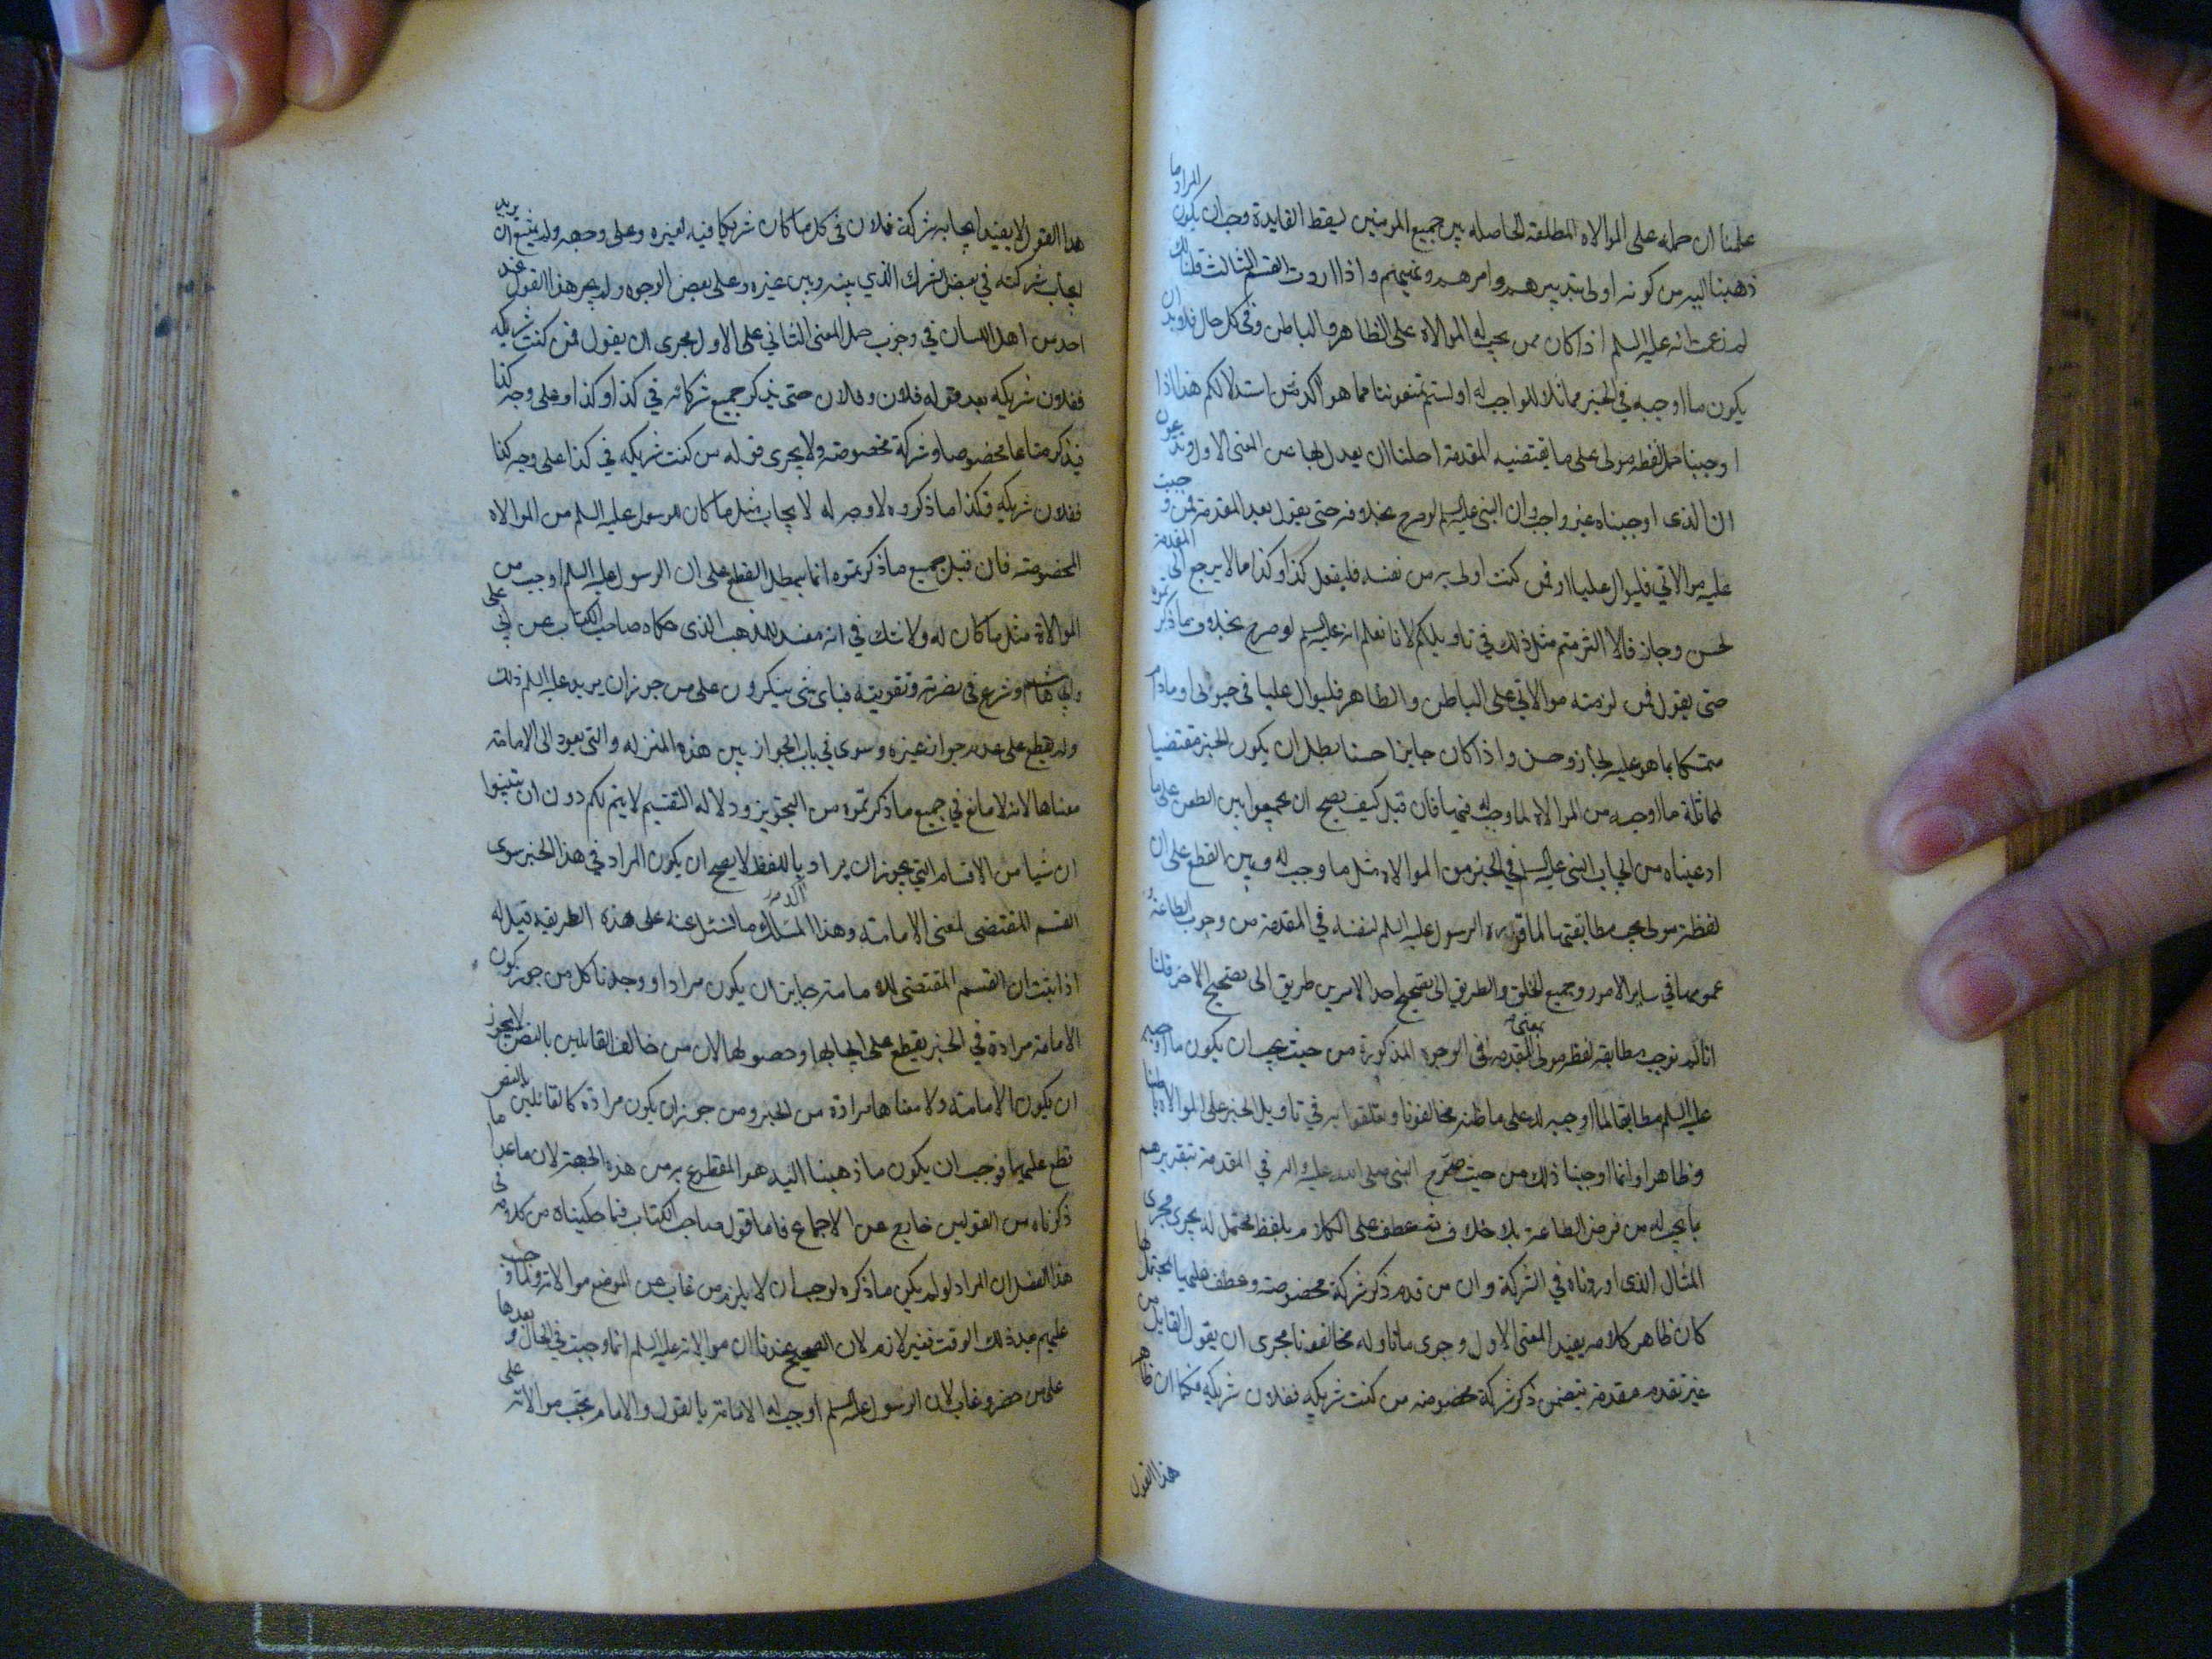 علمنا ان حمله على الموالاه المطلقه الحاصله بين جميع المومنين ليقط الفايدة وجب ان يكون المراد ما
ذهبنا اليه من كونه اولى بتدبيرهم وامرهم ونهيهم واذا اردت القسم الثالث قلنا لك
لم زعمت انه عليه السلم اذا كان ممن يجب له الموالاه على الظاهر والباطن وفي كل حال فلا بد ان
يكون ما اوجبه في الخبر مماثلا للواجب له اولستم تمنعوننا مما هو اكد من استدلالكم هذا اذا
اوجبنا حمل لفظه مولى على ما يقتضيه المقدمة احلنا ان يعدل بها عن المعنى الاول وتدعون
ان الذى اوجبناه غير واجب وان النبى عليه السلم لو صرح بخلافه حتى يقول بعد المقدمة فمن وجبت
عليه موالاتي فليوال عليا او فمن كنت اولى به من نفسه فليفعل كذا وكذا مما لا يرجع الى المقدمة
لحسن وجاز فالا التزمتم مثل ذلك في تاويلكم لانا نعلم انه عليه السلم لو صرح بخلاف ما ذكرتموه
حتى يقول فمن لزمته موالاتي على الباطن والظاهر فليوال عليا في حيوتى او مادام
متمسكا بما هو عليه لجاز وحسن واذا كان جايزا حسنا بطل ان يكون الخبر مقتضيا
لمماثلة ما اوجبه من الموالاة لما وجب له فيها فان قيل كيف يصح ان تجمعوا بين الطعن على ما
ادعيناه من ايجاب النبى عليه السلم في الخبر من الموالاه مثل ما وجب له وبين القطع على ان
لفظة مولى يجب مطابقتها لما قرره الرسول عليه السلم لنفسه في المقدمة من وجوب الطاعة و
عمومها في ساير الامور وجميع الخلق والطريق الى تصحيح احد الامرين طريق الى تصحيح الاخر قلنا
انا لم نوجب مطابقة لفظه مولى لمعنى المقدمه في الوجوه المذكورة من حيث يجب ان يكون ما اوجبه
عليه السلم مطابقا لما اوجبه له على ما ظنه مخالفونا وتعلقوا به في تاويل الخبر على الموالاة باطنا
وظاهرا وانما اوجبنا ذلك من حيث صرّح النبى صلى الله عليه واله في المقدمة بتقريرهم
بما يجب له من فرض الطاعة بلا خلاف ثم عطف على الكلام بلفظ محتمل له يجرى مجرى
المثال الذى اوردناه في الشركة وان من قدم ذكر شركة مخصوصة وعطف عليها محتملا لها
كان ظاهر كلامه يفيد المعنى الاول وجرى ما تاوله مخالفونا مجرى ان يقول القايل من
غير تقدم مقدمة يتضمن ذكر شركة مخصوصه من كنت شريكه ففلان شريكه فكما ان ظاهر
هذا القول
هذا القول لا يفيد ايجابه شركة فلان في كل ما كان شريكا فيه لغيره وعلى وجهه ولم يمتنع ان يريد
ايجاب شركته في بعض الشرك الذي بينه وبين غيره وعلى بعض الوجوه ولم يجر هذا القول عند
احد من اهل اللسان في وجوب حمل المعنى الثاني على الاول مجرى ان يقول فمن كنت شريكه
ففلان شريكه بعد قوله فلان وفلان حتى يذكر جميع شركائه في كذا وكذا وعلى وجه كذا
فيذكر متاعا مخصوصا وشركة مخصوصة ولا يجرى قوله من كنت شريكه في كذا على وجه كذا
ففلان شريكه فكذا ما ذكروه لا وجه له لا يجاب مثل ما كان للرسول عليه السلم من الموالاه
المخصوصة فان قيل جميع ما ذكرتموه انما يبطل القطع على ان الرسول عليه السلم اوجب من
الموالاة مثل ما كان له ولا شك في انه مفسد للمذهب الذى حكاه صاحب الكتاب عن ابي على
وابي هاشم وشرع في نصرته وتقويته فباى شى ينكرون على من جوز ان يريد عليه السلم ذلك
ولم يقطع على عدم جواز غيره وسوى في باب الجواز بين هذه المنزله والتى يعود الى الامامة
معناها لانه لا مانع في جميع ما ذكرتموه من التجويز ودلالة التقسيم لا يتم لكم دون ان تبينوا
ان شيا من الاقسام التي يجوز ان يراد باللفظ لا يصح ان يكون المراد في هذا الخبر سوى
القسم المقتضى لمعنى الامامة وهذا المسلك اكد ما نسئل عنه على هذه الطريقه قيل له
اذا ثبت ان القسم المقتضى للامامة جايز ان يكون مرادا ووجدنا كل من جوز كون
الامامة مرادة في الخبر يقطع على ايجابها وحصولها لان من خالف القايلين بالنص لا يجوز
ان يكون الامامة ولا معناها مرادة من الخبر ومن جوز ان يكون مرادة كالقائلين بالنص
قطع عليها فوجب ان يكون ما ذهبنا اليه هو المقطوع به من هذه الجهة لان ما عدا ما
ذكرناه من القولين خارج عن الاجماع فاما قول صاحب الكتاب فيما حكيناه من كلامه في
هذا الفصل ان المراد لو لم يكن ما ذكره لوجب ان لا يلزم من غاب عن الموضع موالاته ولما وجب
عليهم بعد ذلك الوقت فغير لازم لان الصحيح عندنا ان موالاته عليه السلم انما وجبت في الحال وبعدها
على من حضر وغاب لان الرسول عليه السلم اوجب له الامامة بالقول والامام يجب موالاته على